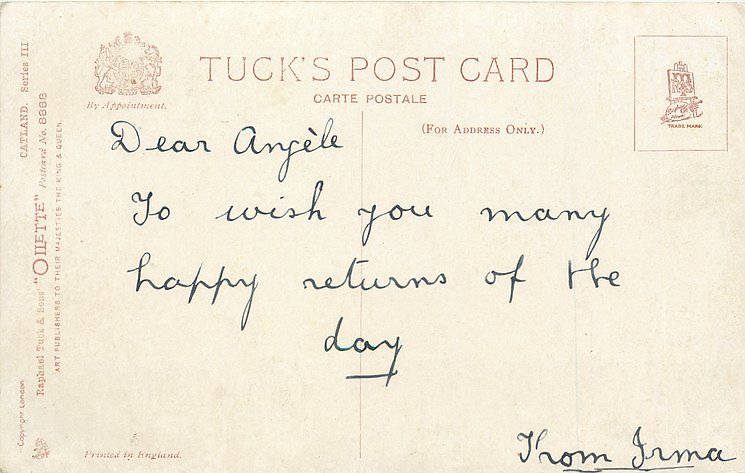 TUCK'S POST CARD
CARTE POSTALE
By Appointment.
(For Address Only.)
TRADE MARK
CATLAND. Series III
Raphael Tuck & Sons' "OILETTE" Postcard No. 8888
ART PUBLISHERS TO THEIR MAJESTIES THE KING & QUEEN.
Copyright London
Dear Angèle
To wish you many
happy returns of the
day
From Irma
Printed in England.